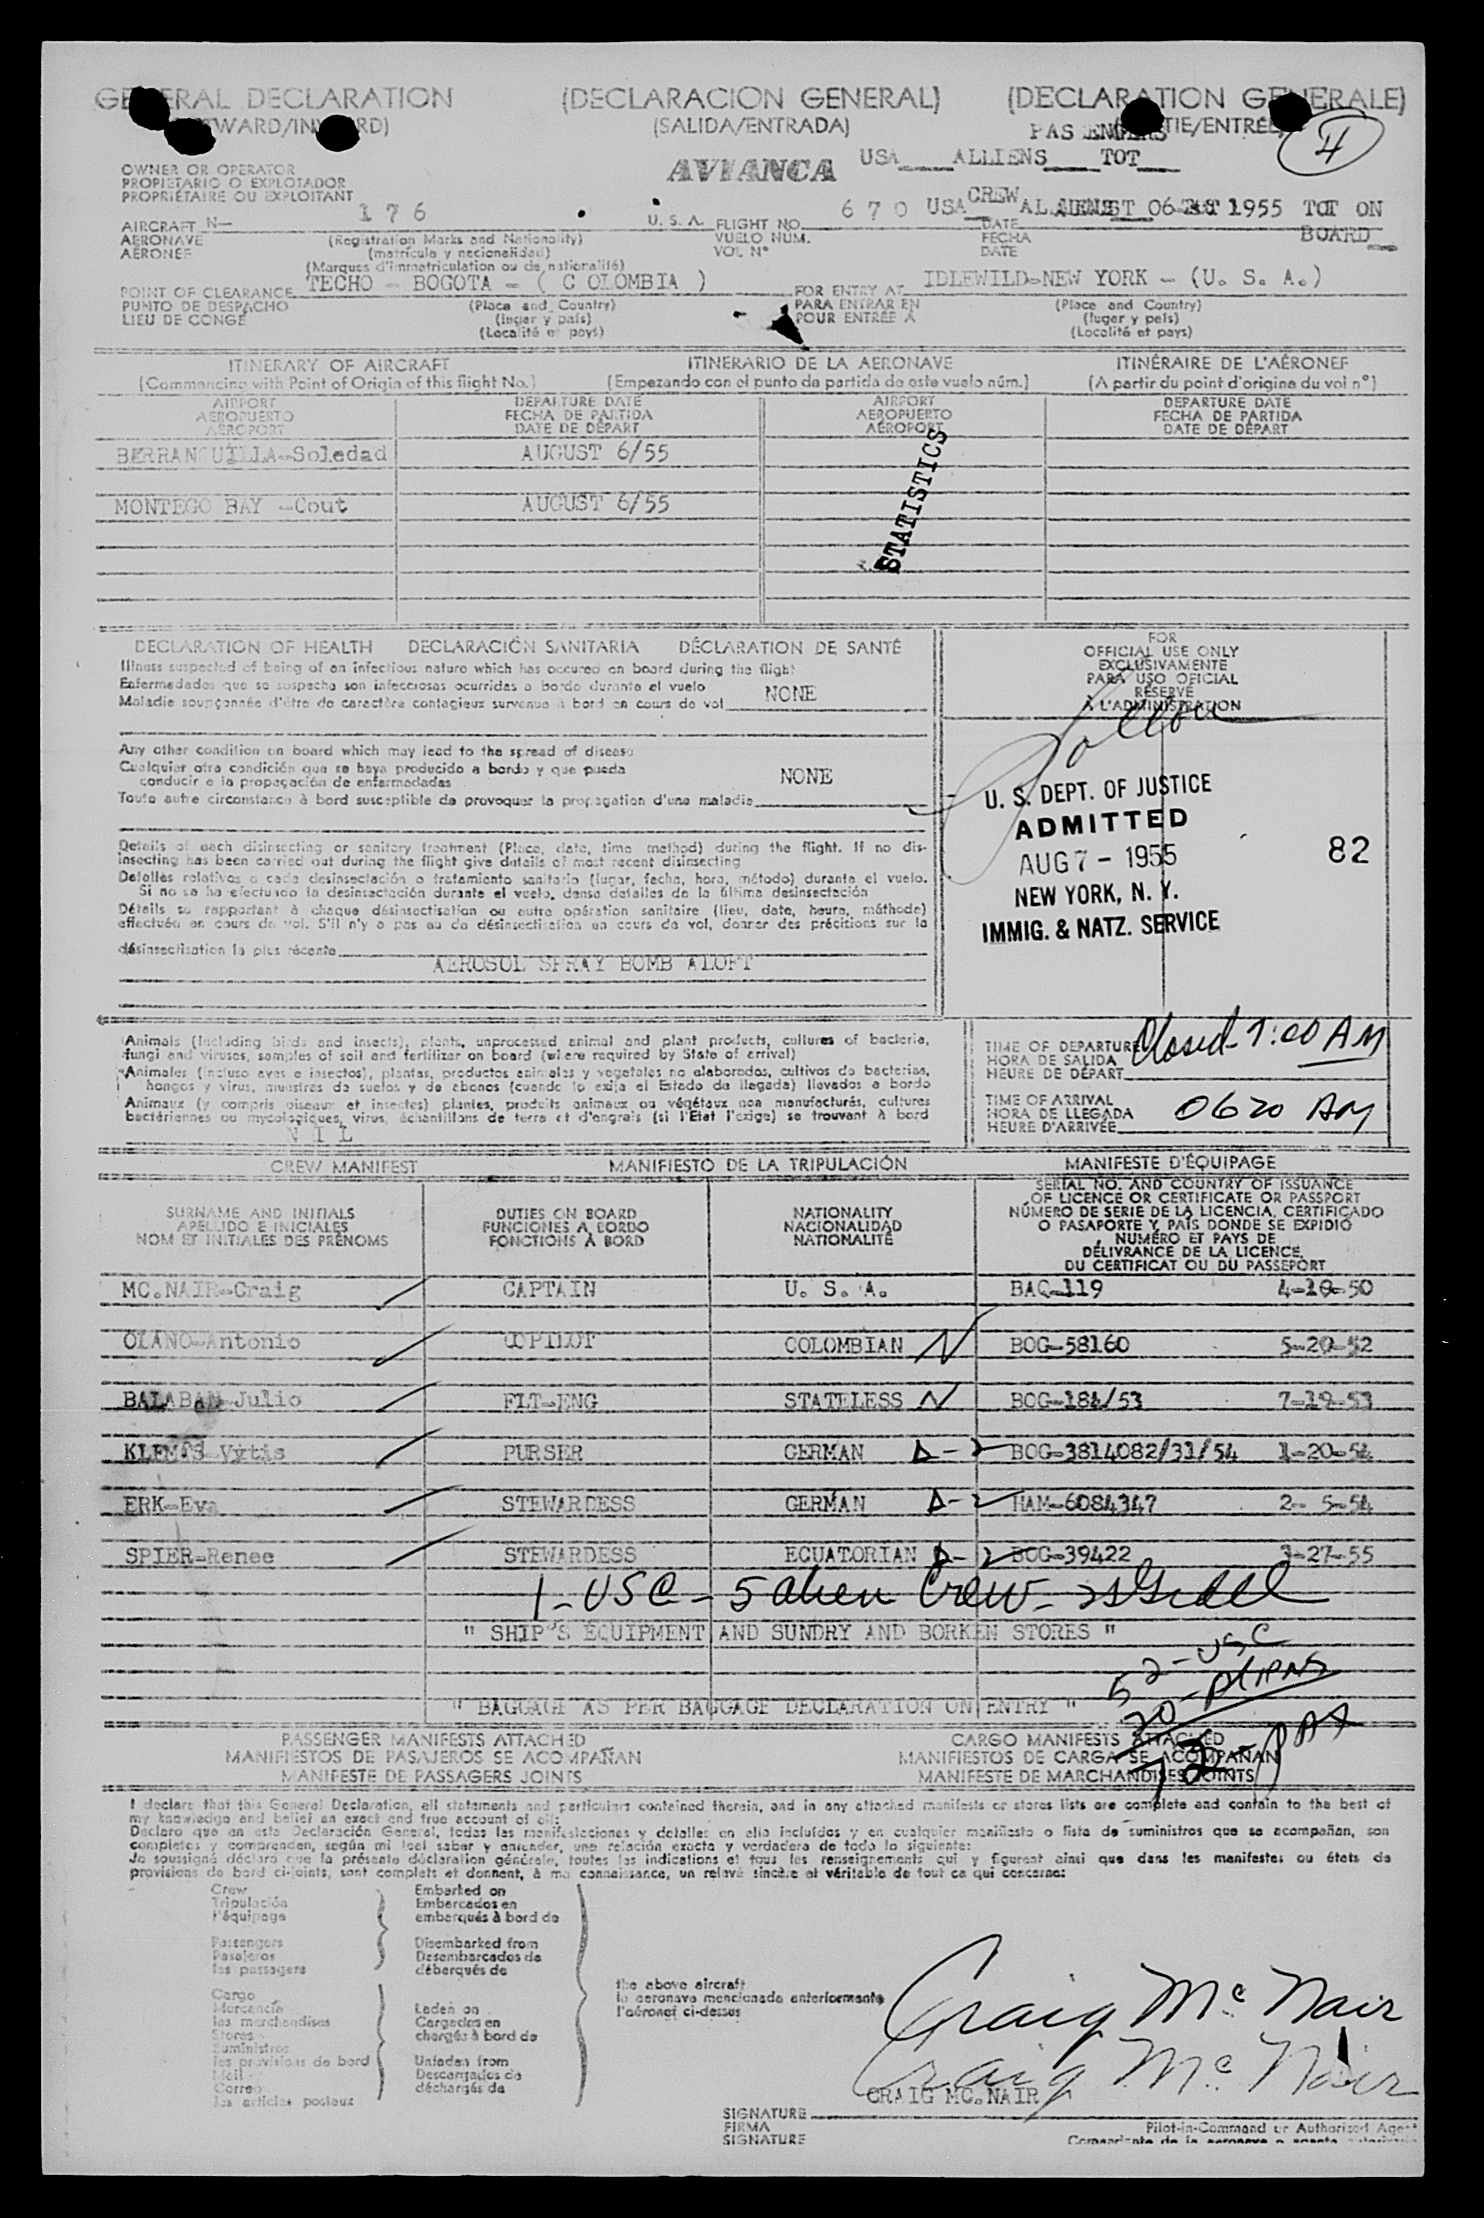 GENERAL DECLARATION (DECLARACION GENERAL) (DECLARATION GENERALE)
(OUTWARD/INWARD) (SALIDA/ENTRADA) (SORTIE/ENTRÉE)
PASENGERS
4
OWNER OR OPERATOR
PROPIETARIO O EXPLOTADOR
PROPRIÉTAIRE OU EXPLOITANT
AVIANCA
USA ALLIENS TOT
AIRCRAFT N- 176 U. S. A. FLIGHT NO. 670 USA CREW AL 06 1955 TOT ON
BOARD
AERONAVE (Registration Marks and Nationality) VUELO NUM. DATE
AÉRONEF (matrícula y nacionalidad) VOL N° FECHA
(Marques d'immatriculation ou de nationalité) DATE
POINT OF CLEARANCE TECHO - BOGOTA - ( C OLOMBIA ) FOR ENTRY AT IDLEWILD-NEW YORK - (U. S. A.)
PUNTO DE DESPACHO (Place and Country) PARA ENTRAR EN (Place and Country)
LIEU DE CONGÉ (lugar y país) POUR ENTRÉE A (lugar y país)
(Localité et pays) (Localité et pays)
ITINERARY OF AIRCRAFT ITINERARIO DE LA AERONAVE ITINÉRAIRE DE L'AÉRONEF
(Commencing with Point of Origin of this flight No.) (Empezando con el punto de partida de este vuelo núm.) (A partir du point d'origine du vol n°)
AIRPORT DEPARTURE DATE AIRPORT DEPARTURE DATE
AEROPUERTO FECHA DE PARTIDA AEROPUERTO FECHA DE PARTIDA
AÉROPORT DATE DE DÉPART AÉROPORT DATE DE DÉPART
BERRANQUILLA-Soledad AUGUST 6/55
MONTEGO BAY -Cout AUGUST 6/55
STATISTICS
DECLARATION OF HEALTH DECLARACIÓN SANITARIA DÉCLARATION DE SANTÉ
Illness suspected of being of an infectious nature which has occured on board during the flight
Enfermedades que se sospecha son infecciosas ocurridas a bordo durante el vuelo
Maladie soupçonnée d'être de caractère contagieux survenue à bord en cours de vol NONE
Any other condition on board which may lead to the spread of disease
Cualquier otra condición que se haya producido a bordo y que pueda
conducir a la propagación de enfermedades NONE
Toute autre circonstance à bord susceptible de provoquer la propagation d'une maladie
Details of each disinsecting or sanitary treatment (Place, date, time method) during the flight. If no dis-
insecting has been carried out during the flight give details of most recent disinsecting
Detalles relativos a cada desinsectación o tratamiento sanitario (lugar, fecha, hora, método) durante el vuelo.
Si no se ha efectuado la desinsectación durante el vuelo, dense detalles de la última desinsectación
Détails se rapportant à chaque désinsectisation ou autre opération sanitaire (lieu, date, heure, méthode)
effectuée en cours de vol. S'il n'y a pas eu de désinsectisation en cours de vol, donner des précitions sur la
désinsectisation la plus récente
AEROSOL SPRAY BOMB ALOFT
FOR
OFFICIAL USE ONLY
EXCLUSIVAMENTE
PARA USO OFICIAL
RÉSERVÉ
À L'ADMINISTRATION
U. S. DEPT. OF JUSTICE
ADMITTED
AUG 7 - 1955
NEW YORK, N. Y.
IMMIG. & NATZ. SERVICE
82
Animals (including birds and insects), plants, unprocessed animal and plant products, cultures of bacteria,
fungi and viruses, samples of soil and fertilizer on board (where required by State of arrival)
Animales (incluso aves e insectos), plantas, productos animales y vegetales no elaborados, cultivos de bacterias,
hongos y virus, muestras de suelos y de abonos (cuando lo exija el Estado de llegada) llevados a bordo
Animaux (y compris oiseaux et insectes) plantes, produits animaux ou végétaux non manufacturés, cultures
bactériennes ou mycologiques, virus, échantillons de terre et d'engrais (si l'Etat l'exige) se trouvant à bord
NIL
TIME OF DEPARTURE
HORA DE SALIDA
HEURE DE DÉPART
Closed 7:00 AM
TIME OF ARRIVAL
HORA DE LLEGADA
HEURE D'ARRIVÉE
0620 AM
CREW MANIFEST MANIFIESTO DE LA TRIPULACIÓN MANIFESTE D'ÉQUIPAGE
SURNAME AND INITIALS
APELLIDO E INICIALES
NOM ET INITIALES DES PRÉNOMS
DUTIES ON BOARD
FUNCIONES A BORDO
FONCTIONS À BORD
NATIONALITY
NACIONALIDAD
NATIONALITÉ
SERIAL NO. AND COUNTRY OF ISSUANCE
OF LICENCE OR CERTIFICATE OR PASSPORT
NÚMERO DE SERIE DE LA LICENCIA, CERTIFICADO
O PASAPORTE Y PAÍS DONDE SE EXPIDIÓ
NUMÉRO ET PAYS DE
DÉLIVRANCE DE LA LICENCE,
DU CERTIFICAT OU DU PASSEPORT
MC.NAIR-Craig CAPTAIN U. S. A. BAQ-119 4-10-50
OLANO-Antonio COPILOT COLOMBIAN N BOG-58160 5-20-52
BALABAN-Julio FLT-ENG STATELESS N BOG-184/53 7-19-53
KLEMAS-Vytis PURSER GERMAN D-2 BOG-3814082/31/54 1-20-54
ERK-Eva STEWARDESS GERMAN D-2 HAM-6084347 2- 5-54
SPIER-Renee STEWARDESS ECUATORIAN D-2 BOG-39422 3-27-55
1-USC-5 alien Crew-
" SHIP'S EQUIPMENT AND SUNDRY AND BORKEN STORES "
52-USC
20-aliens
72-PAX
" BAGGAGE AS PER BAGGAGE DECLARATION ON ENTRY "
PASSENGER MANIFESTS ATTACHED CARGO MANIFESTS ATTACHED
MANIFIESTOS DE PASAJEROS SE ACOMPAÑAN MANIFIESTOS DE CARGA SE ACOMPAÑAN
MANIFESTE DE PASSAGERS JOINTS MANIFESTE DE MARCHANDISES JOINTS
I declare that this General Declaration, all statements and particulars contained therein, and in any attached manifests or stores lists are complete and contain to the best of
my knowledge and belief an exact and true account of all:
Declaro que en esta Declaración General, todas las manifestaciones y detalles en ella incluídos y en cualquier manifiesto o lista de suministros que se acompañan, son
completos y comprenden, según mi leal saber y entender, una relación exacta y verdadera de todo lo siguiente:
Je soussigné déclare que la présente déclaration générale, toutes les indications et tous les renseignements qui y figurent ainsi que dans les manifestes ou états de
provisions de bord ci-joints, sont complets et donnent, à ma connaissance, un relevé sincère et véritable de tout ce qui concerne:
Crew
Tripulación
l'équipage
Passengers
Pasajeros
les passagers
Cargo
Mercancía
les marchandises
Stores
Suministros
les provisions de bord
Mail
Correo
les articles postaux
Embarked on
Embarcados en
embarqués à bord de
Disembarked from
Desembarcados de
débarqués de
Laden on
Cargados en
chargés à bord de
Unladen from
Descargados de
déchargés de
the above aircraft
la aeronave mencionada anteriormente
l'aéronef ci-dessus
Craig McNair
Craig McNair
CRAIG MC.NAIR
SIGNATURE
FIRMA
SIGNATURE
Pilot-in-Command or Authorized Agent